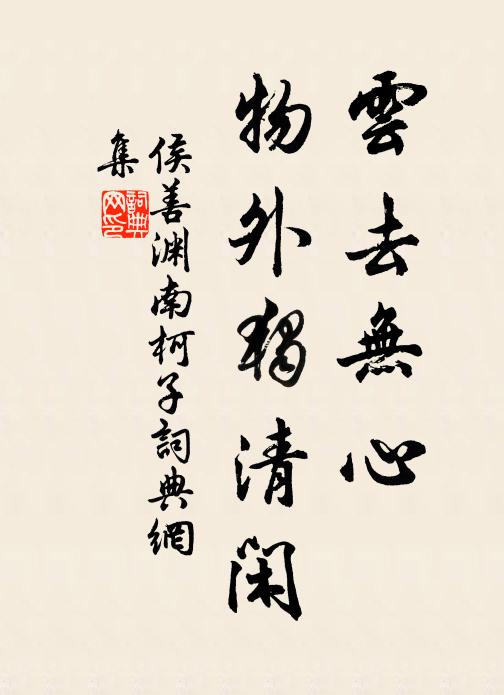 雲去無心
物外獨清閑
侯善渊南柯子詞典網
集
詞典網印